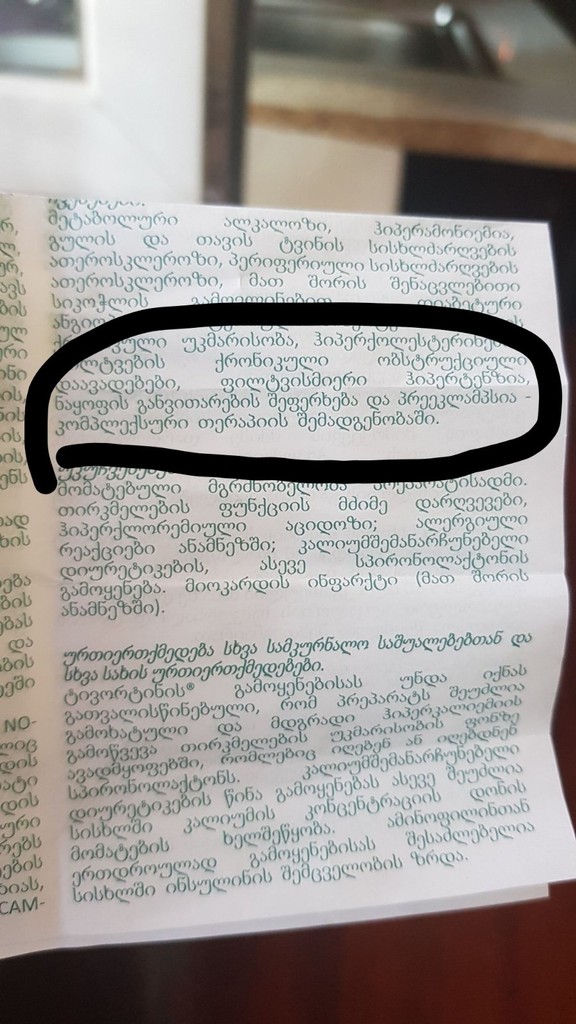 მეტაბოლური ალკალოზი, ჰიპერამონიემია,
გულის და თავის ტვინის სისხლძარღვების
ათეროსკლეროზი, პერიფერიული სისხლძარღვების
ათეროსკლეროზი, მათ შორის შენაცვლებითი
სიკოჭლის გამოვლინებით, დიაბეტური
უკმარისობა, ჰიპერქოლესტერინემია
ფილტვების ქრონიკული ობსტრუქციული
დაავადებები, ფილტვისმიერი ჰიპერტენზია,
ნაყოფის განვითარების შეფერხება და პრეეკლამპსია -
კომპლექსური თერაპიის შემადგენლობაში.
უკუჩვენებები
მომატებული მგრძნობელობა პრეპარატისადმი.
თირკმელების ფუნქციის მძიმე დარღვევები,
ჰიპერქლორემიული აციდოზი; ალერგიული
რეაქციები ანამნეზში; კალიუმშემანარჩუნებელი
დიურეტიკების, ასევე სპირონოლაქტონის
გამოყენება. მიოკარდის ინფარქტი (მათ შორის
ანამნეზში).
ურთიერთქმედება სხვა სამკურნალო საშუალებებთან და
სხვა სახის ურთიერთქმედებები.
ტივორტინის® გამოყენებისას უნდა იქნას
გათვალისწინებული, რომ პრეპარატს შეუძლია
გამოხატული და მდგრადი ჰიპერკალიემიის
გამოწვევა თირკმელების უკმარისობის ფონზე
ავადმყოფებში, რომლებიც იღებენ ან იღებდნენ
სპირონოლაქტონს. კალიუმშემანარჩუნებელი
დიურეტიკების წინა გამოყენებას ასევე შეუძლია
სისხლში კალიუმის კონცენტრაციის დონის
მომატების ხელშეწყობა. ამინოფილინთან
ერთდროულად გამოყენებისას შესაძლებელია
სისხლში ინსულინის შემცველობის ზრდა.